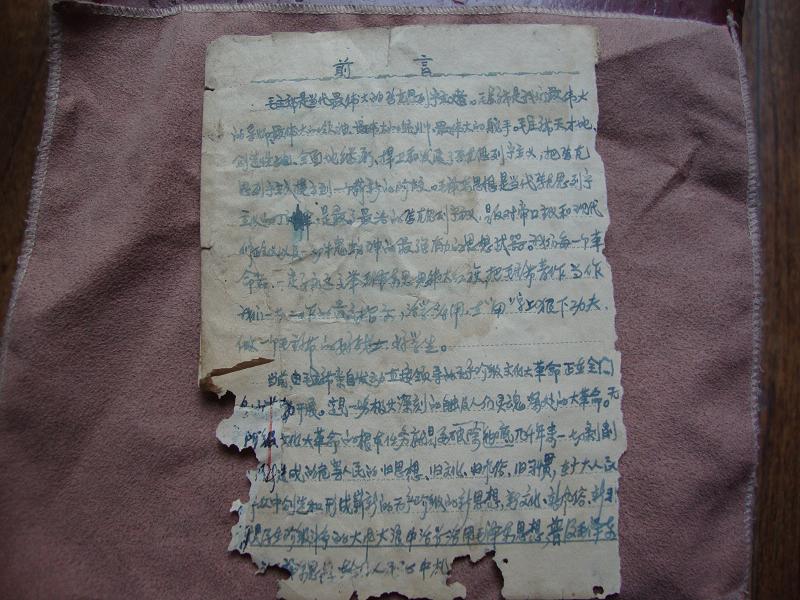 前言
毛主席是当代最伟大的马克思列宁主义者。毛主席是我们最伟大
的导师、最伟大的领袖、最伟大的统帅、最伟大的舵手。毛主席天才地、
创造性地、全面地继承、捍卫和发展了马克思列宁主义，把马克
思列宁主义提高到一个崭新的阶段。毛泽东思想是当代马克思列宁
主义的顶峰，是最高最活的马克思列宁主义，是反对帝国主义和现代
修正主义以及一切牛鬼蛇神的最强大的思想武器。我们每一个革
命者，一定要高举毛泽东思想伟大红旗，把毛主席著作当作
我们一切工作的最高指示，活学活用，在“用”字上狠下功夫，
做一个毛主席的好战士，好学生。
当前，由毛主席亲自发动和直接领导的无产阶级文化大革命正在全
开展。这是一场极其深刻的触及人们灵魂深处的大革命。无
阶级文化大革命的根本任务就是要彻底几千年来一切剥削
造成的危害人民的旧思想、旧文化、旧风俗、旧习惯，在广大人民
众中创造和形成崭新的无产阶级的新思想、新文化、新风俗、新习
大风大浪中活学活用毛泽东思想，普及毛泽东
思想 人 中